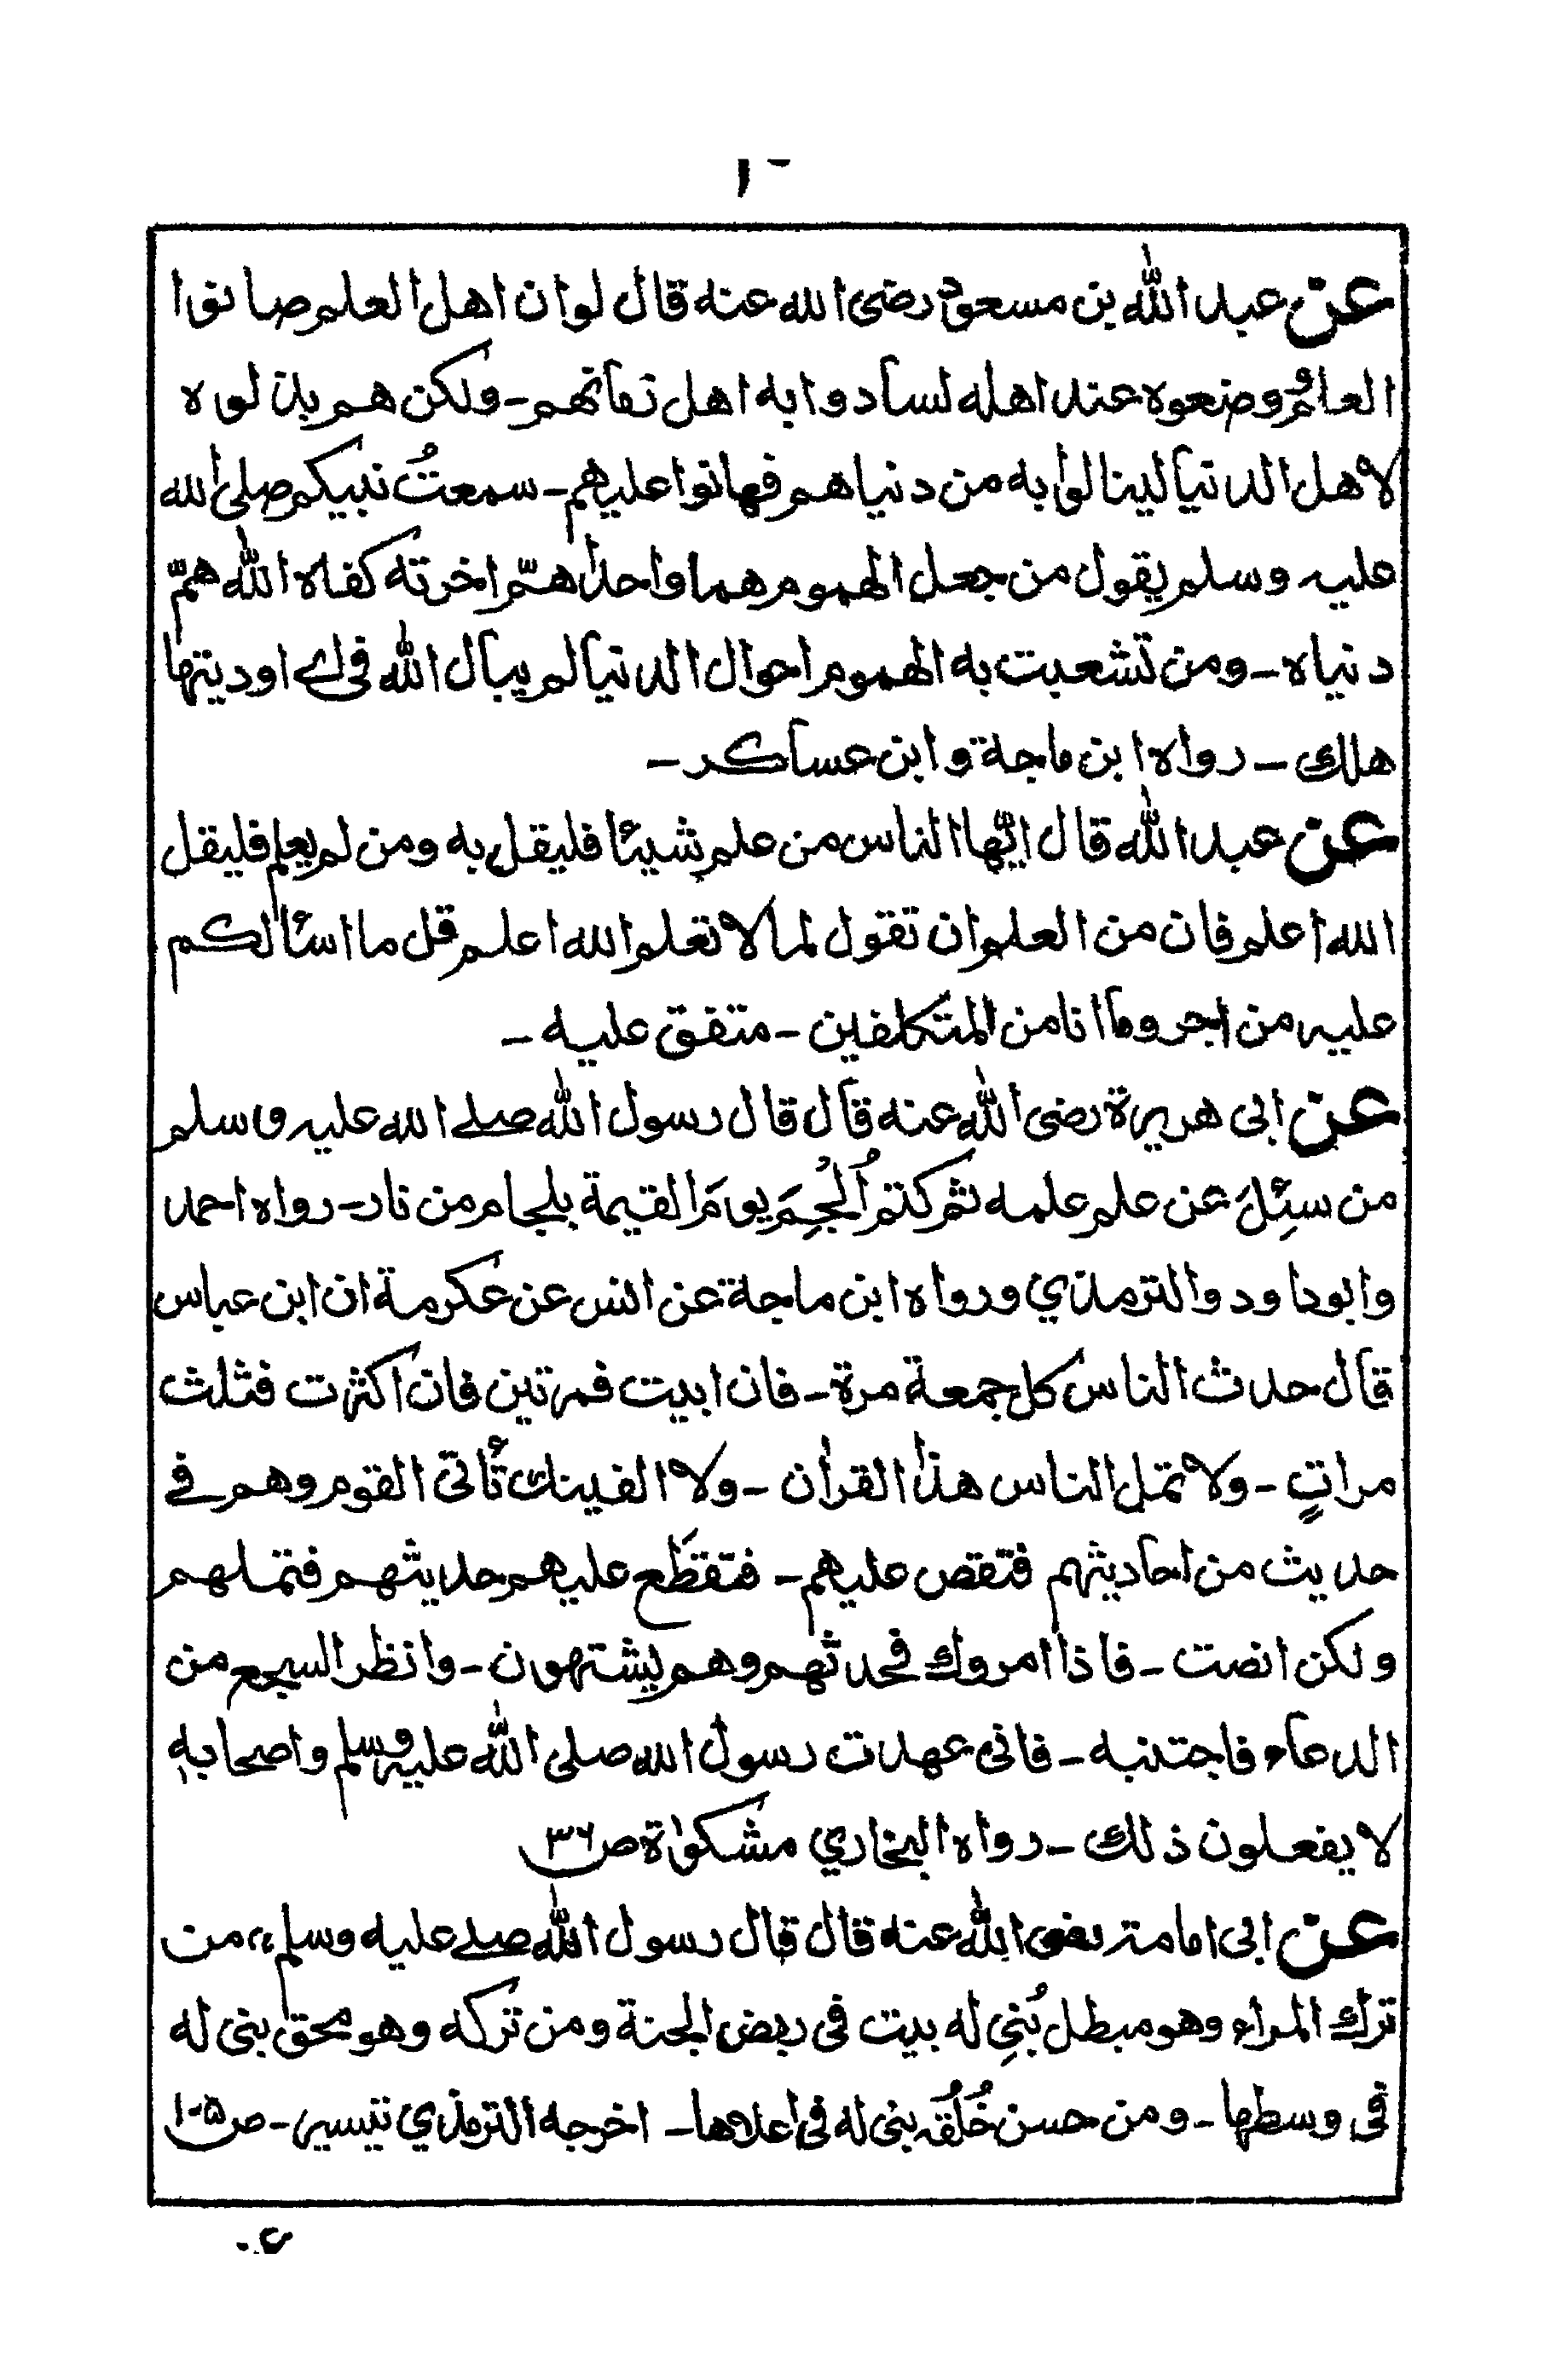 عن عبد الله بن مسعود رضى الله عنه قال لوان اهل العلم صانوا
العلم ووضعوه عند اهله لسادوا به اهل زمانهم - ولكن هم بذلوه
لاهل الدنيا لينالوا به من دنياهم فهانوا عليهم - سمعتُ نبيكم صلى الله
عليه وسلم يقول من جعل الهموم هما واحدا همّ اخرته كفاه الله همّ
دنياه - ومن تشعبت به الهموم احوال الدنيا لم يبال الله فى اے اوديتها
هلك - رواه ابن ماجة وابن عساكر -
عن عبد الله قال ايّها الناس من علم شيئا فليقل به ومن لم يعلم فليقل
الله اعلم فان من العلم ان تقول لما لا تعلم الله اعلم قل ما اسئالكم
عليه من اجر وما انا من المتكلفين - متفق عليه -
عن ابى هريرة رضى الله عنه قال قال رسول الله صلے الله عليه وسلم
من سئِلَ عن علم علمه ثم كتم اُلجُمَ يومَ القيمة بلجام من نار - رواه احمد
وابوداود والترمذي ورواه ابن ماجة عن انس عن عكرمة ان ابن عباس
قال حدث الناس كل جمعة مرة - فان ابيت فمرتين فان اكثرت فثلث
مراتٍ - ولا تمل الناس هذا القران - ولا الفينك تأتى القوم وهم فے
حديث من احاديثهم فتقص عليهم - فتقطع عليهم حديثهم فتملهم
ولكن انصت - فاذا امروك فحدثهم وهم يشتهون - وانظر السجع من
الدعاء فاجتنبه - فانى عهدت رسول الله صلى الله عليه وسلم واصحابه
لا يفعلون ذلك - رواه البخاري مشكوٰة ص ٣٦
عن ابى امامة رضى الله عنه قال قال رسول الله صلے عليه وسلم، من
ترك المراء وهو مبطل بُنِي له بيت فى ربض الجنة ومن تركه وهو محق بنى له
فى وسطها - ومن حسن خُلُقه بنى له فى اعلاها - اخرجه الترمذي تيسير - ص